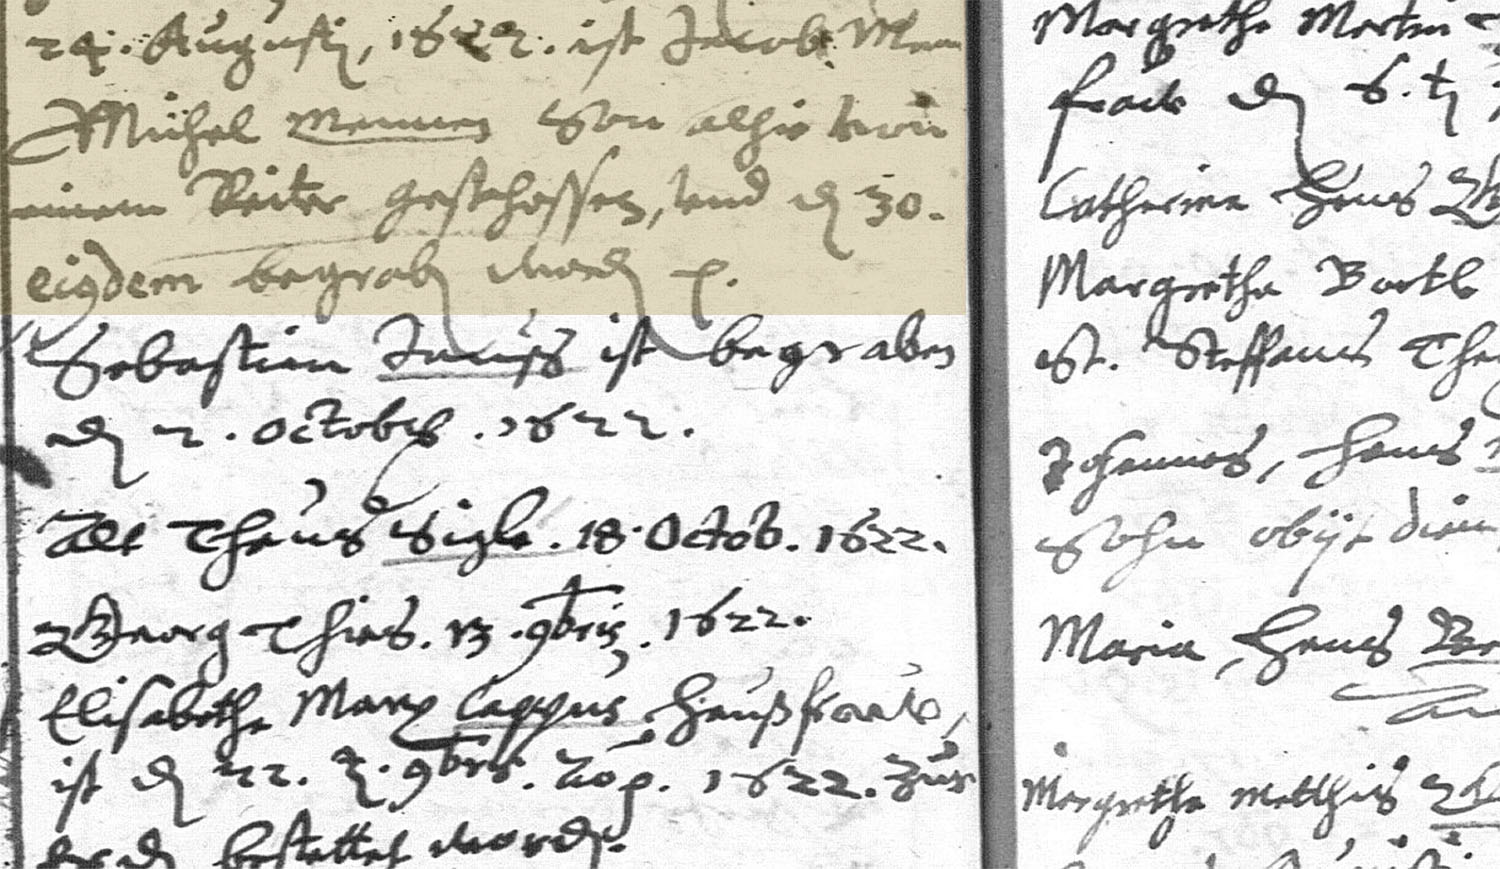 24. Augusti, 1622. ist Jacob Menn
Michel Mennen Son alhie von
einem Reiter geschossen, vnd dn 30.
eiusdem begrabn wordn
Sebastian Jauß ist begraben
dn 2. Octobris. 1622.
Alt Theus Sigle. 18. Octob. 1622.
Georg Thies. 13. 9bris. 1622.
Elisabetha Marx Cappus Haußfraw,
ist dn 22. 9bris. 1622. Zur
Erdn bestattet wordn.
Margretha Martin
fraw dn 6.
Catherina Hans
Margretha Bartle
St. Steffans
Johannes, Hans
Sohn obijt
Maria, Hans
Margretha Matthis